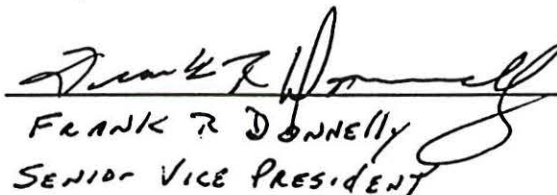 Frank R Donnelly
FRANK R DONNELLY
SENIOR VICE PRESIDENT